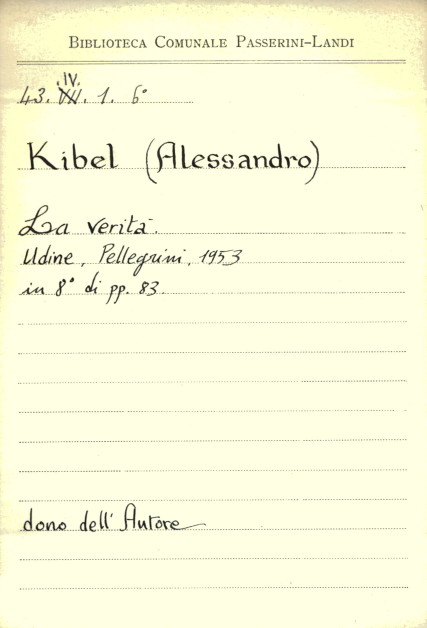 BIBLIOTECA COMUNALE PASSERINI-LANDI
IV.
43. VII. 1. 6°
Kibel (Alessandro)
La verità.
Udine, Pellegrini, 1953
in 8° di pp. 83.
dono dell'Autore